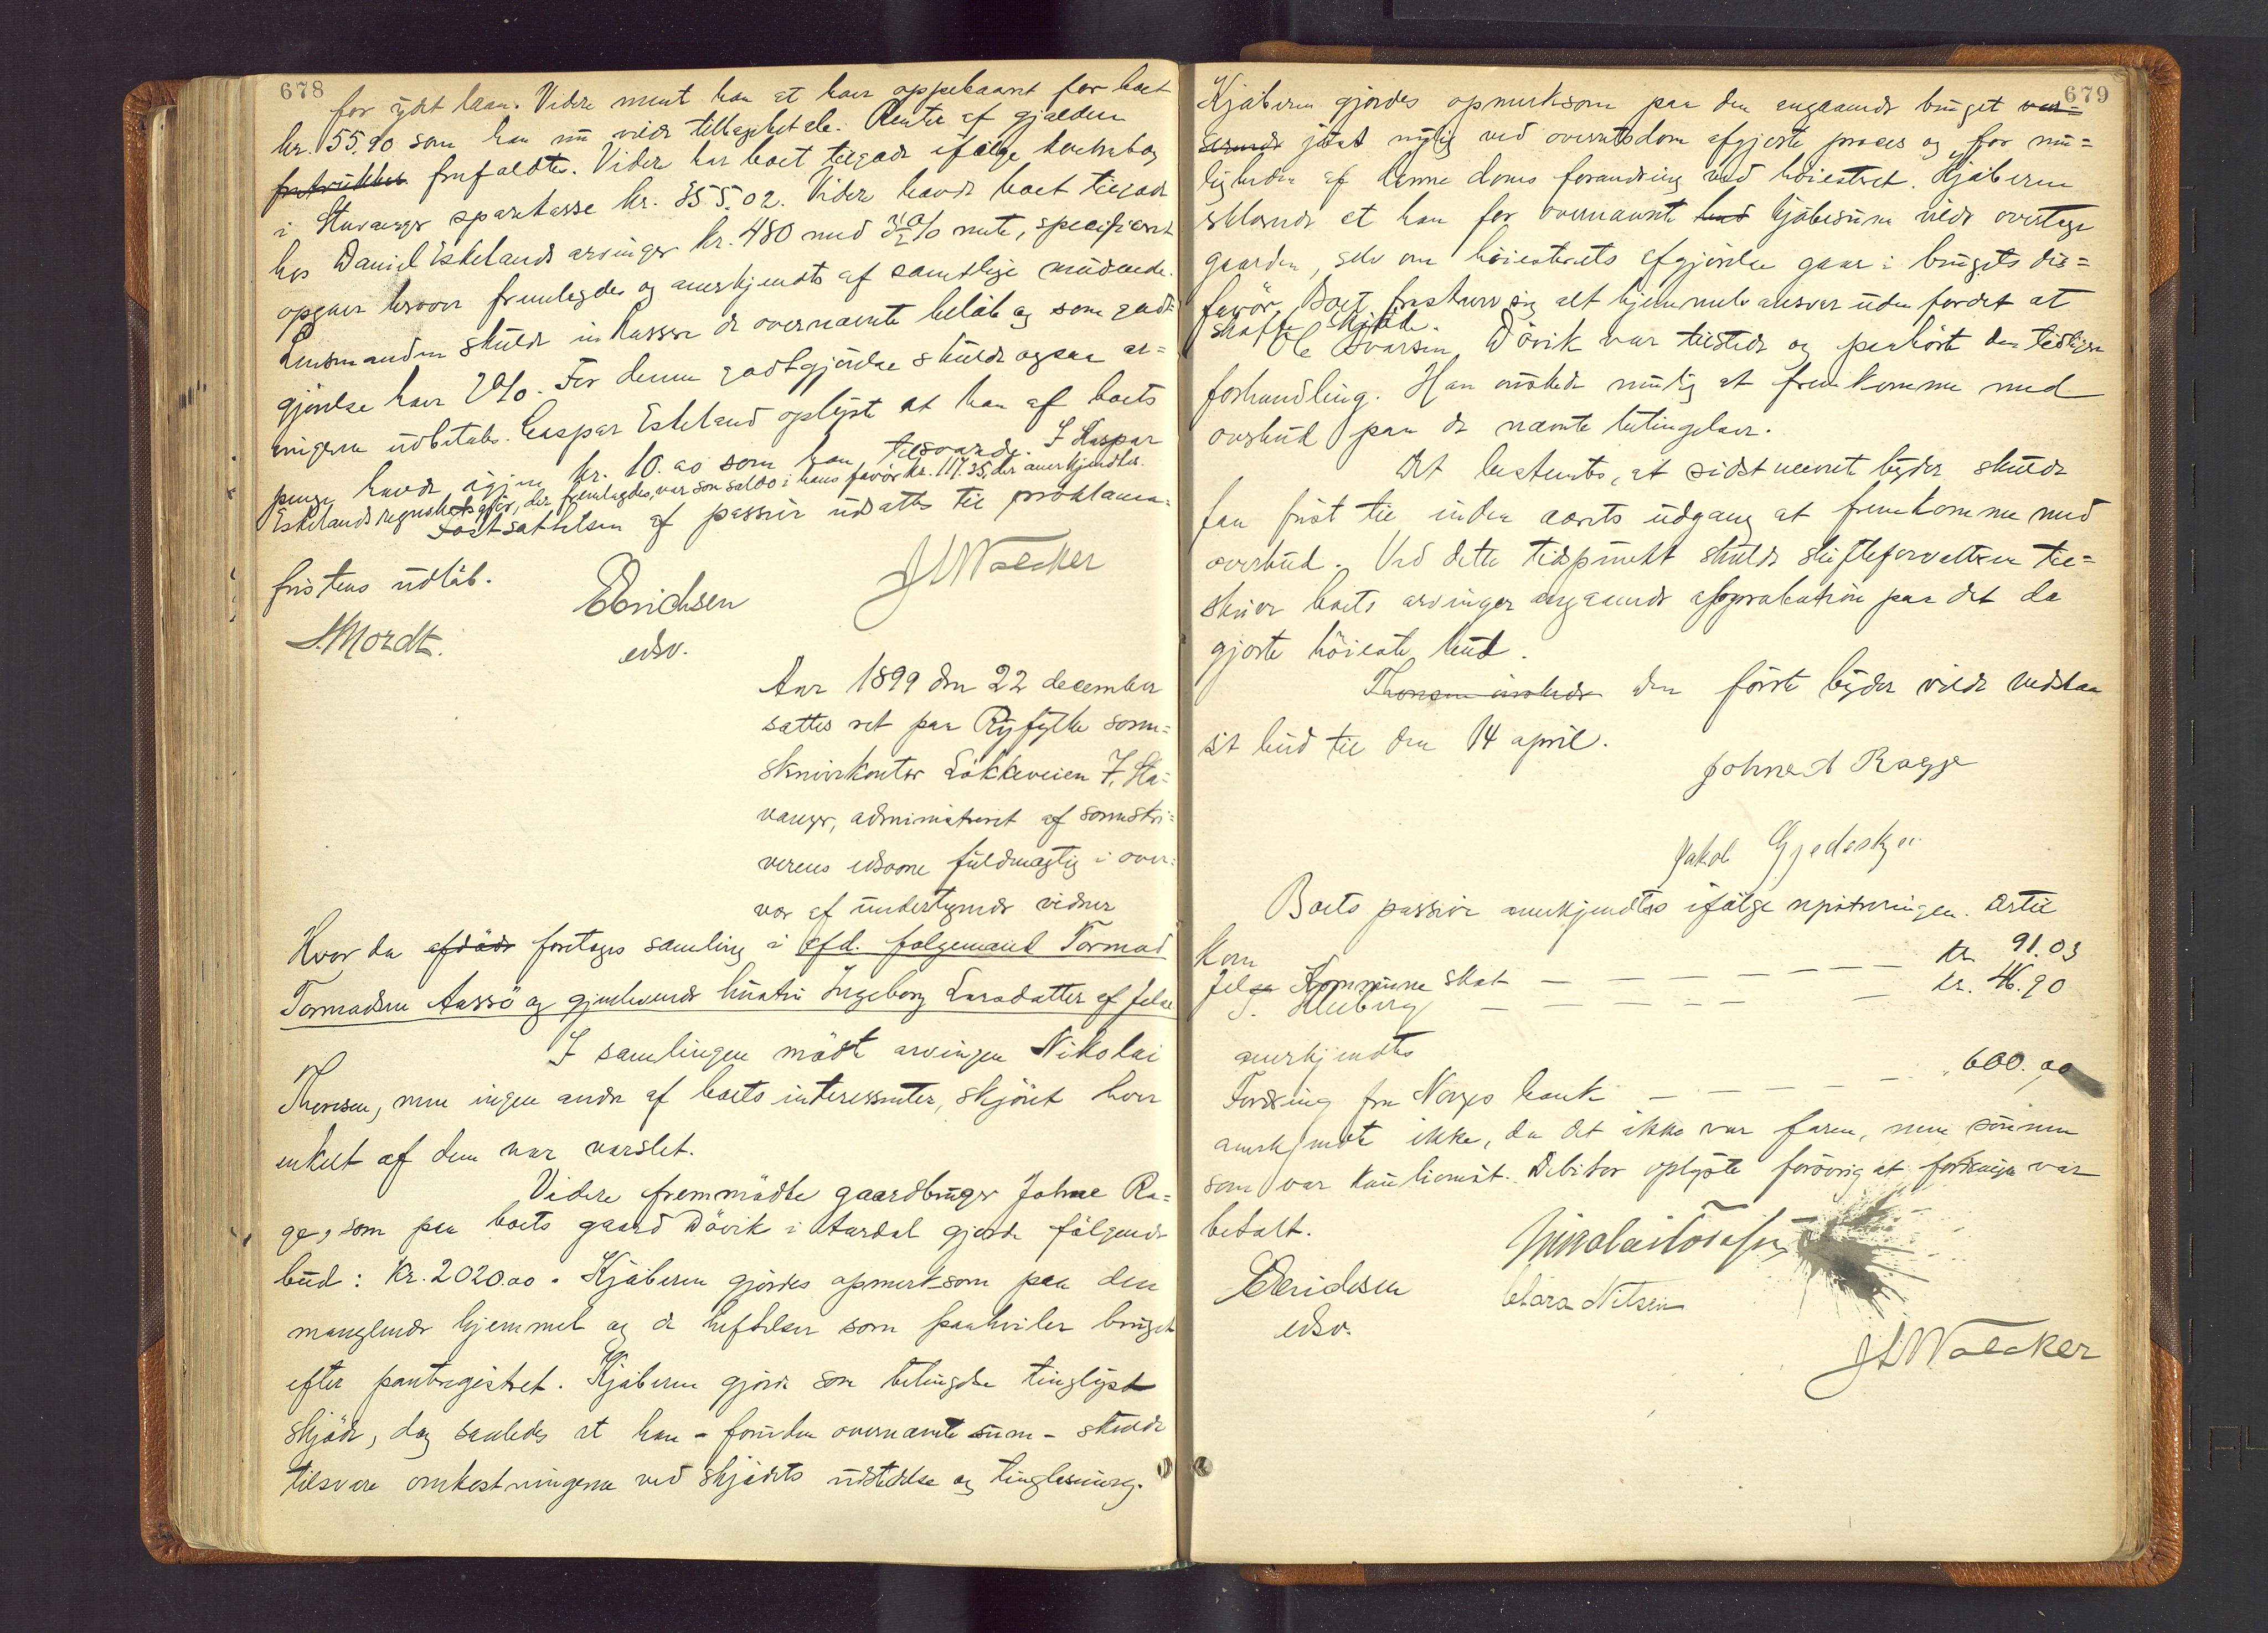 678
for ydt laan. Videre mente han at have oppebaaret for boet
kr. 55.90 som han nu vilde tilbagebetale. Renter af gjælden
fratrukket frafaldtes. Videre har boet tilgode ifølge kontrabog
i Stavanger sparekasse kr. 355.02. Videre havde boet tilgode
hos Daniel Eskelands arvinger kr. 480 med 3½% rente, specificeret
opgave herover fremlagdes og anerkjendtes af samtlige mødende.
Lensmanden skulde inkassere de overnævnte beløb og som godt-
gjørelse have 2%. For denne godtgjørelse skulde ogsaa ar-
vingerne udbetales. Caspar Eskeland oplyste at han af boets
penge havde igjen kr. 10.00 som han tilsvarede. I Kaspar
Eskelands regnskabsafør, der fremlagdes, var som saldo i hans favør kr. 117.35, der anerkjendtes.
Fastsættelsen af passiver udsattes til proklama-
fristens udløb.
EErichsen
edsv.
JLWalcker
S. Mordt.
Aar 1899 den 22 december
sattes ret paa Ryfylke soren-
skriverkontor Løkkeveien 7, Sta-
vanger, administreret af sorenskri-
verens edsvorne fuldmægtig i over-
vær af undertegnede vidner
Hvor da afdøde foretoges samling i afd. følgemand Tormod
Tormodsen Aasø og gjenlevende hustru Ingeborg Larsdatter af Jelse
I samlingen mødte arvingen Nikolai
Thoresen, men ingen andre af boets interessenter, skjønt hver
enkelt af dem var varslet.
Videre fremmødte gaardbruger Johne Ra-
ge, som paa boets gaard Døvik i Aardal gjorde følgende
bud: Kr. 2020.00. Kjøberen gjordes opmerksom paa den
manglende hjemmel og de heftelser som paahviler bruget
efter pantregistret. Kjøberen gjorde som betingelse tinglyst
skjøde, dog saaledes at han - foruden overnævnte sum - skulde
tilsvare omkostningerne ved skjødets udstedelse og tinglæsning.
679
Kjøberen gjordes opmerksom paa den angaaende bruget ver-
serende jetat nylig ved overretsdom afgjorte proces og for mu-
ligheden af denne doms forandring ved høiesteret. Kjøberen
erklærede at han for overnævnte bud kjøbesum vilde overtage
gaarden selv om høiesterets afgjørelse gaar i brugets dis-
favør. Boet fraskrev sig alt hjemmelsansvar uden fordet at
skaffe skjøde.
Ole Ivarsen Døvik var tilstede og paahørte den tidligere
forhandling. Han ønskede mulig at fremkomme med
overbud paa de nævnte betingelser.
Det bestemtes, at sidstnævnte byder skulde
faa frist til inden aarets udgang at fremkomme med
overbud. Ved dette tidspunkt skulde skifteforvalteren til-
skrive boets arvinger angaaende approbation paa det da
gjorte høieste bud.
Thorsen ønskede den første byder vilde vedstaa
sit bud til den 14 april.
Johne A Ragge
Jakob Gjedeskjei
Boets passiver anerkjendtes ifølge repartneringen. Dertil
kom
Jelse Kommune skat — — — — — kr. 91.03
T. Kleiberg — — — — — kr. 46.90
anerkjendtes
Fordring fra Norges bank — — — — 600.00
anerkjendte ikke, da det ikke var faren, men sønnen
som var kautionist. Debitor oplyste forøvrig at fordringen var
betalt.
Ninolai Toresen
EErichsen
edsv.
Clara Nilsen
JLWalcker